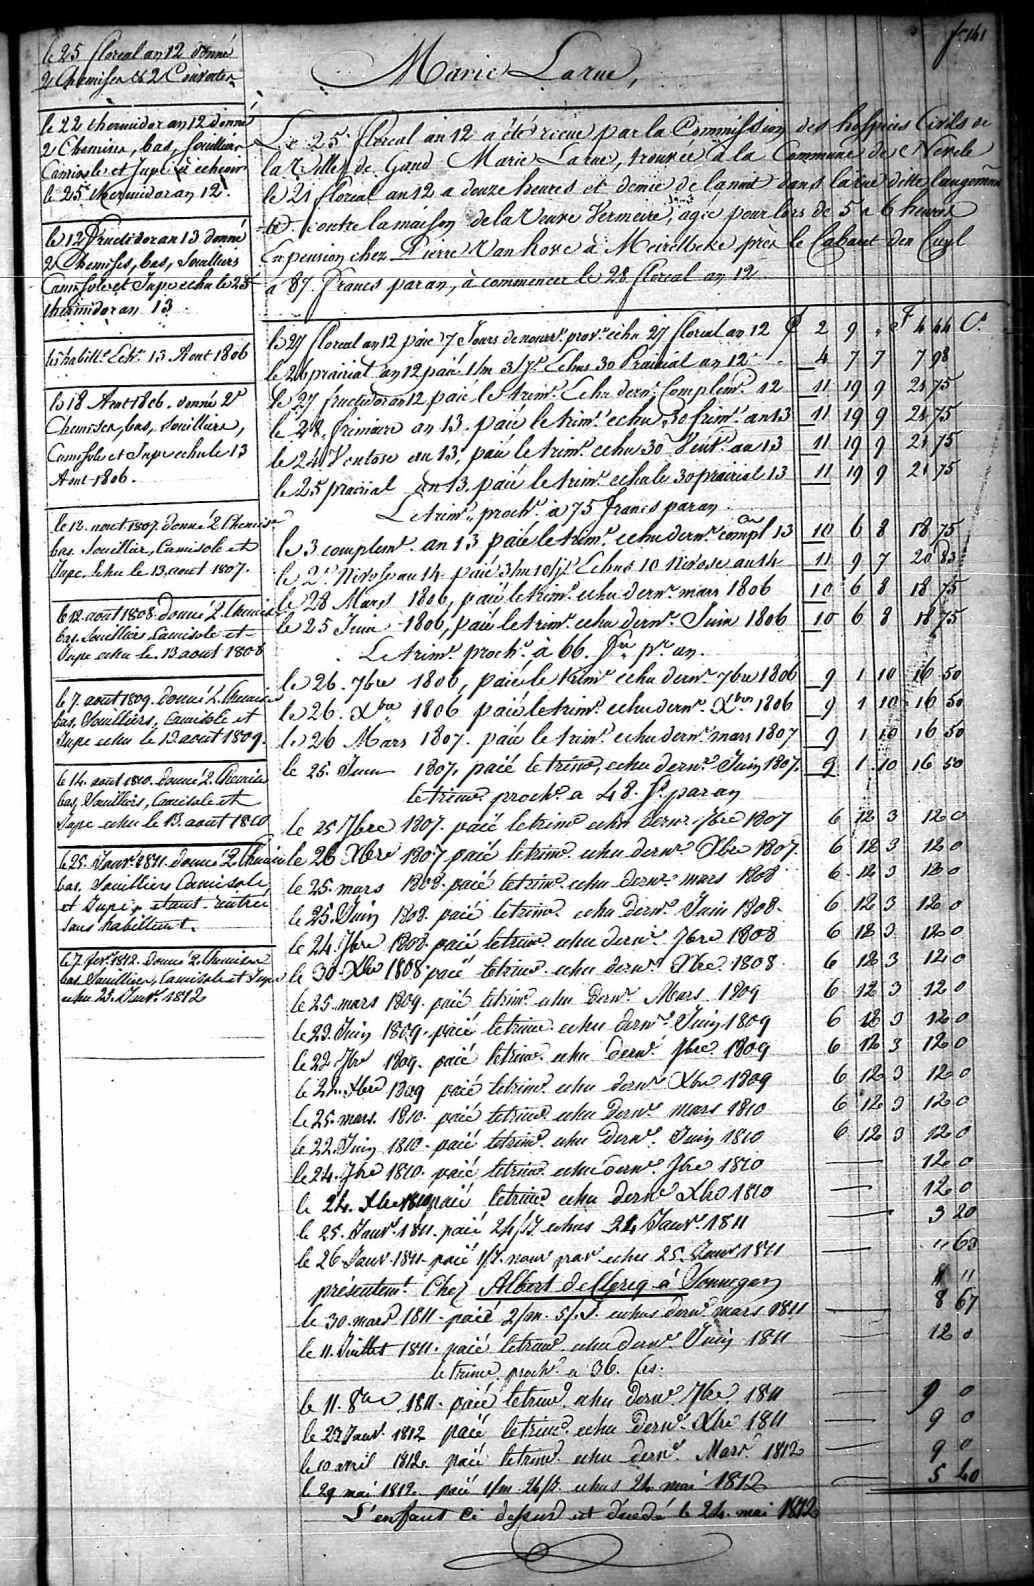 fo 141
Marie Larue,
le 25 floreal an 12 donné
2 Chemises & 2 Couvertes
le 22 thermidor an 12 donné
2 Chemises, bas, souilliers
Camisole et Jupe à echeoir
le 25 thermidor an 12.
le 12 fructidor an 13 donné
2 Chemises, bas, Souilliers
Camisole et Jupe echu le 25
thermidor an 13
habillt. Ech. 13 Aout 1806
le 18 Aout 1806. donné 2
Chemises, bas, souilliers,
Camisole et Jupe echu le 13
Aout 1806.
le 12. aout 1807. donné 2 Chemise
bas Souillier, Camisole et
Jupe. Echu le 13. aout 1807.
le 12. aout 1808. donné 2. Chemise
bas. Souilliers Camisole et
Jupe echu le. 13 aout 1808
le 7. aout 1809. donné 2. Chemise
bas, Souilliers, Camisole et
Jupe echu le 13 aout 1809.
le 14. aout 1810. donné 2. Chemise
bas, Souilliers, Camisole et
Jupe echu le 13. aout 1810
le 25. Janvr. 1811. donné 2 Chemise
bas. Souilliers Camisole,
et Jupe, etant rentrée
sans habillement.
le 7. fevr. 1812. donné 2 Chemises
bas Souilliers, Camisole et Jupe
echu 25. Janvr. 1812
Le 25 floreal an 12 a été recue par la Commission des hospices Civils de
la Ville de Gand Marie Larue, trouvée à la Commune de Nevele
le 21 floreal an 12 a douze heures et demie de la nuit dans la rue dite
contre la maison de la Veuve Vermeire, agée pour lors de 5 a 6 heures
En pension chez Pierre Van hove à Meirelbeke près le Cabaret den Cuyl
a 87. francs par an, à commencer le 28 floreal an 12
le 27 floreal an 12 paié 7 Jours de nourr. prov. echu 27 floreal an 12 2 9 " 4 44 Cs
le 26 prairial an 12 paié 1/m 3/J. Echus 30 Prairial an 12 4 7 7 7 98
le 27 fructidor an 12 paié le trim. Echu dern. Complem. 12 11 19 9 21 75
le 28, frimaire an 13. paié le trim. echu 30 frim. an 13 11 19 9 21 75
le 24 Ventose an 13, paié le trim. echu 30 Vent. an 13 11 19 9 21 75
le 25 prairial an 13. paié le trim. echu le 30 prairial 13 11 19 9 21 75
Le trim. proch. a 75 francs par an
le 3 complemt. an 13 paié le trim. echu dern. compl 13 10 6 8 18 75
le 2. Nivose an 14. paié 3/m 10/J. Echus 10 Nivose an 14 11 9 7 20 83
le 28 Mars 1806, paié le trim. echu dern. mars 1806 10 6 8 18 75
le 25 Juin 1806, paié le trim. echu dern. Juin 1806 10 6 8 18 75
Le trim. proch. à 66. fr. pr. an.
le 26. 7bre 1806, paié le trim. echu dern. 7bre 1806 9 1 10 16 50
le 26. Xbre 1806 paié le trim. echu dern. Xbre 1806 9 1 10 16 50
le 26 Mars 1807. paié le trim. echu dern. mars 1807 9 1 10 16 50
le 25. Juin 1807. paié le trim. echu dern. Juin 1807. 9 1 10 16 50
le trim. proch. a 48. f. par an
le 25 7bre 1807. paié le trim. echu dern. 7bre 1807 6 12 3 12 0
le 26 Xbre 1807 paié le trim. echu dern. Xbre 1807. 6 12 3 12 0
le 25. mars 1808. paié le trim. echu dern. mars 1808 6 12 3 12 0
le 25. Juin 1808. paié le trim. echu dern. Juin 1808. 6 12 3 12 0
le 24. 7bre 1808. paié le trim. echu dern. 7bre 1808 6 12 3 12 0
le 30. Xbre 1808. paié le trim. echu dern. Xbre. 1808. 6 12 3 12 0
le 25. mars 1809. paié le trim. echu dern. Mars. 1809 6 12 3 12 0
le 23. Juin 1809. paié le trim. echu dern. Juin 1809 6 12 3 12 0
le 22. 7br 1809. paié le trim. echu dern. 7bre. 1809 6 12 3 12 0
le 22. Xbre 1809 paié le trim. echu dern. Xbre 1809 6 12 3 12 0
le 25. mars. 1810. paié le trim. echu dern. mars 1810 6 12 3 12 0
le 22. Juin 1810. paié le trim. echu dern. Juin 1810 6 12 3 12 0
le 24. 7bre 1810. paié le trim. echu dern. 7bre 1810 — 12 0
le 24. Xbre 1810 paié le trim. echu dern. Xbre 1810 — 12 0
le 25. Janvr. 1811. paié 24/J. echus 24 Janvr. 1811 — 3 20
le 26 Janvr 1811. paié 1/J. nour par echu 25. Janvr 1811 — " 63
présentemt. Chez Albert deClercq a Vonnegen " "
le 30 mars 1811. paié 2/m. 5/J. echus dern. mars 1811 — 8 67
le 11. Juillet 1811. paié le trim. echu dern. Juin 1811 — 12 0
le trim. proch. a 36. fcs.
le 11. 8bre 1811. paié le trim. echu dern. 7bre. 1811 — 9 0
le 27 Janvr. 1812 paié le trim. echu dern. Xbre 1811 — 9 0
le 10 avril 1812 paié le trim. echu dern. Mars. 1812 — 9 0
le 29 mai 1812. paié 1/m. 24/J. echus 24 mai 1812 — 5 40
L'enfant ce dessus est décédé le 24. mai 1812